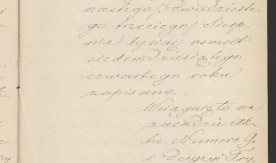 nastego /: dwudzieste-
go trzeciego :/ Sierp-
nia tysiąc ośmset
siedemdziesiątego
czwartego roku
zapisano.
Wciągnięto na
zasadzie Ak-
tu Numero 9.